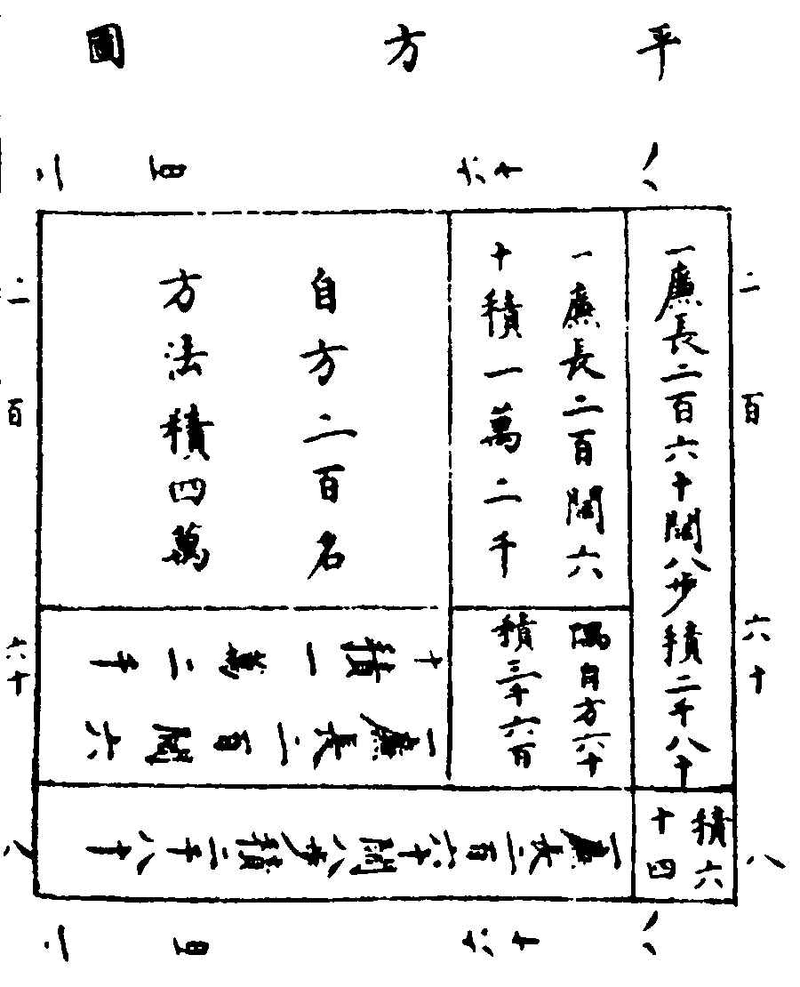 平方圖
二百六十八
二百六十八
一廉長二百六十闊八步積二千八十
一廉長二百闊六
十積一萬二千
自方二百名
方法積四萬
隅自方六十
積三千六百
一廉長二百闊六
十積一萬二千
積六
十四
一廉長二百六十闊八步積二千八十
二百六十八
二百六十八